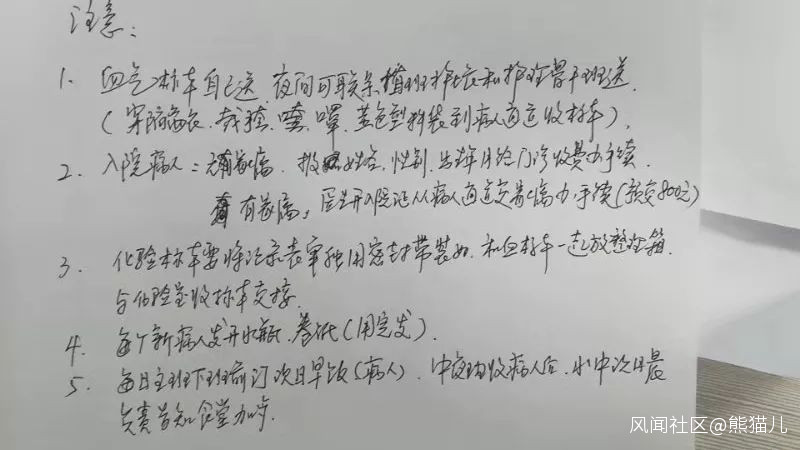 注意:
1. 血气标本自己送,夜间可联系值班护长和护理骨干班送
(穿隔离衣、戴 罩、蓝色塑料袋到病人通道收标本),
2. 入院病人:无家属,报 姓名,性别,出生年月给门诊收费办手续.
有家属,医生开入院证从病人通道交家属办手续(预交800元)
3. 化验标本要将记录表单独用密封带装好,和血标本一起放整理箱
与化验室收标本交接.
4. 每个新病人发开水瓶、卷纸(用完发).
5. 每日主班下班前订次日早饭(病人),中夜班收病人后, 次日晨
负责告知食堂加 .
风闻社区@熊猫儿